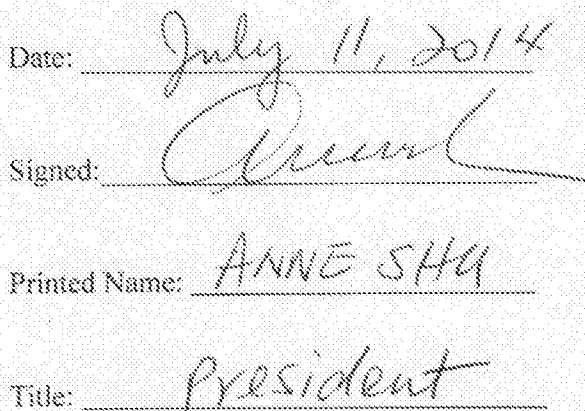 Date: July 11, 2014
Signed:
Printed Name: ANNE SHU
Title: President